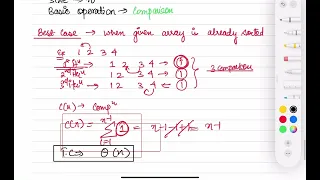 Basic operation → Comparison
Best Case → when given array is already sorted
Eg 1 2 3 4
1st itr → 1 2 3 4 → 1
2nd itr → 1 2 3 4 → 1
3rd itr → 1 2 3 4 → 1
3 comparison
C(n) → Compn
C(n) = n-1 Σ i=1 1 = n-1-1+1 = n-1
T.C → Θ(n)